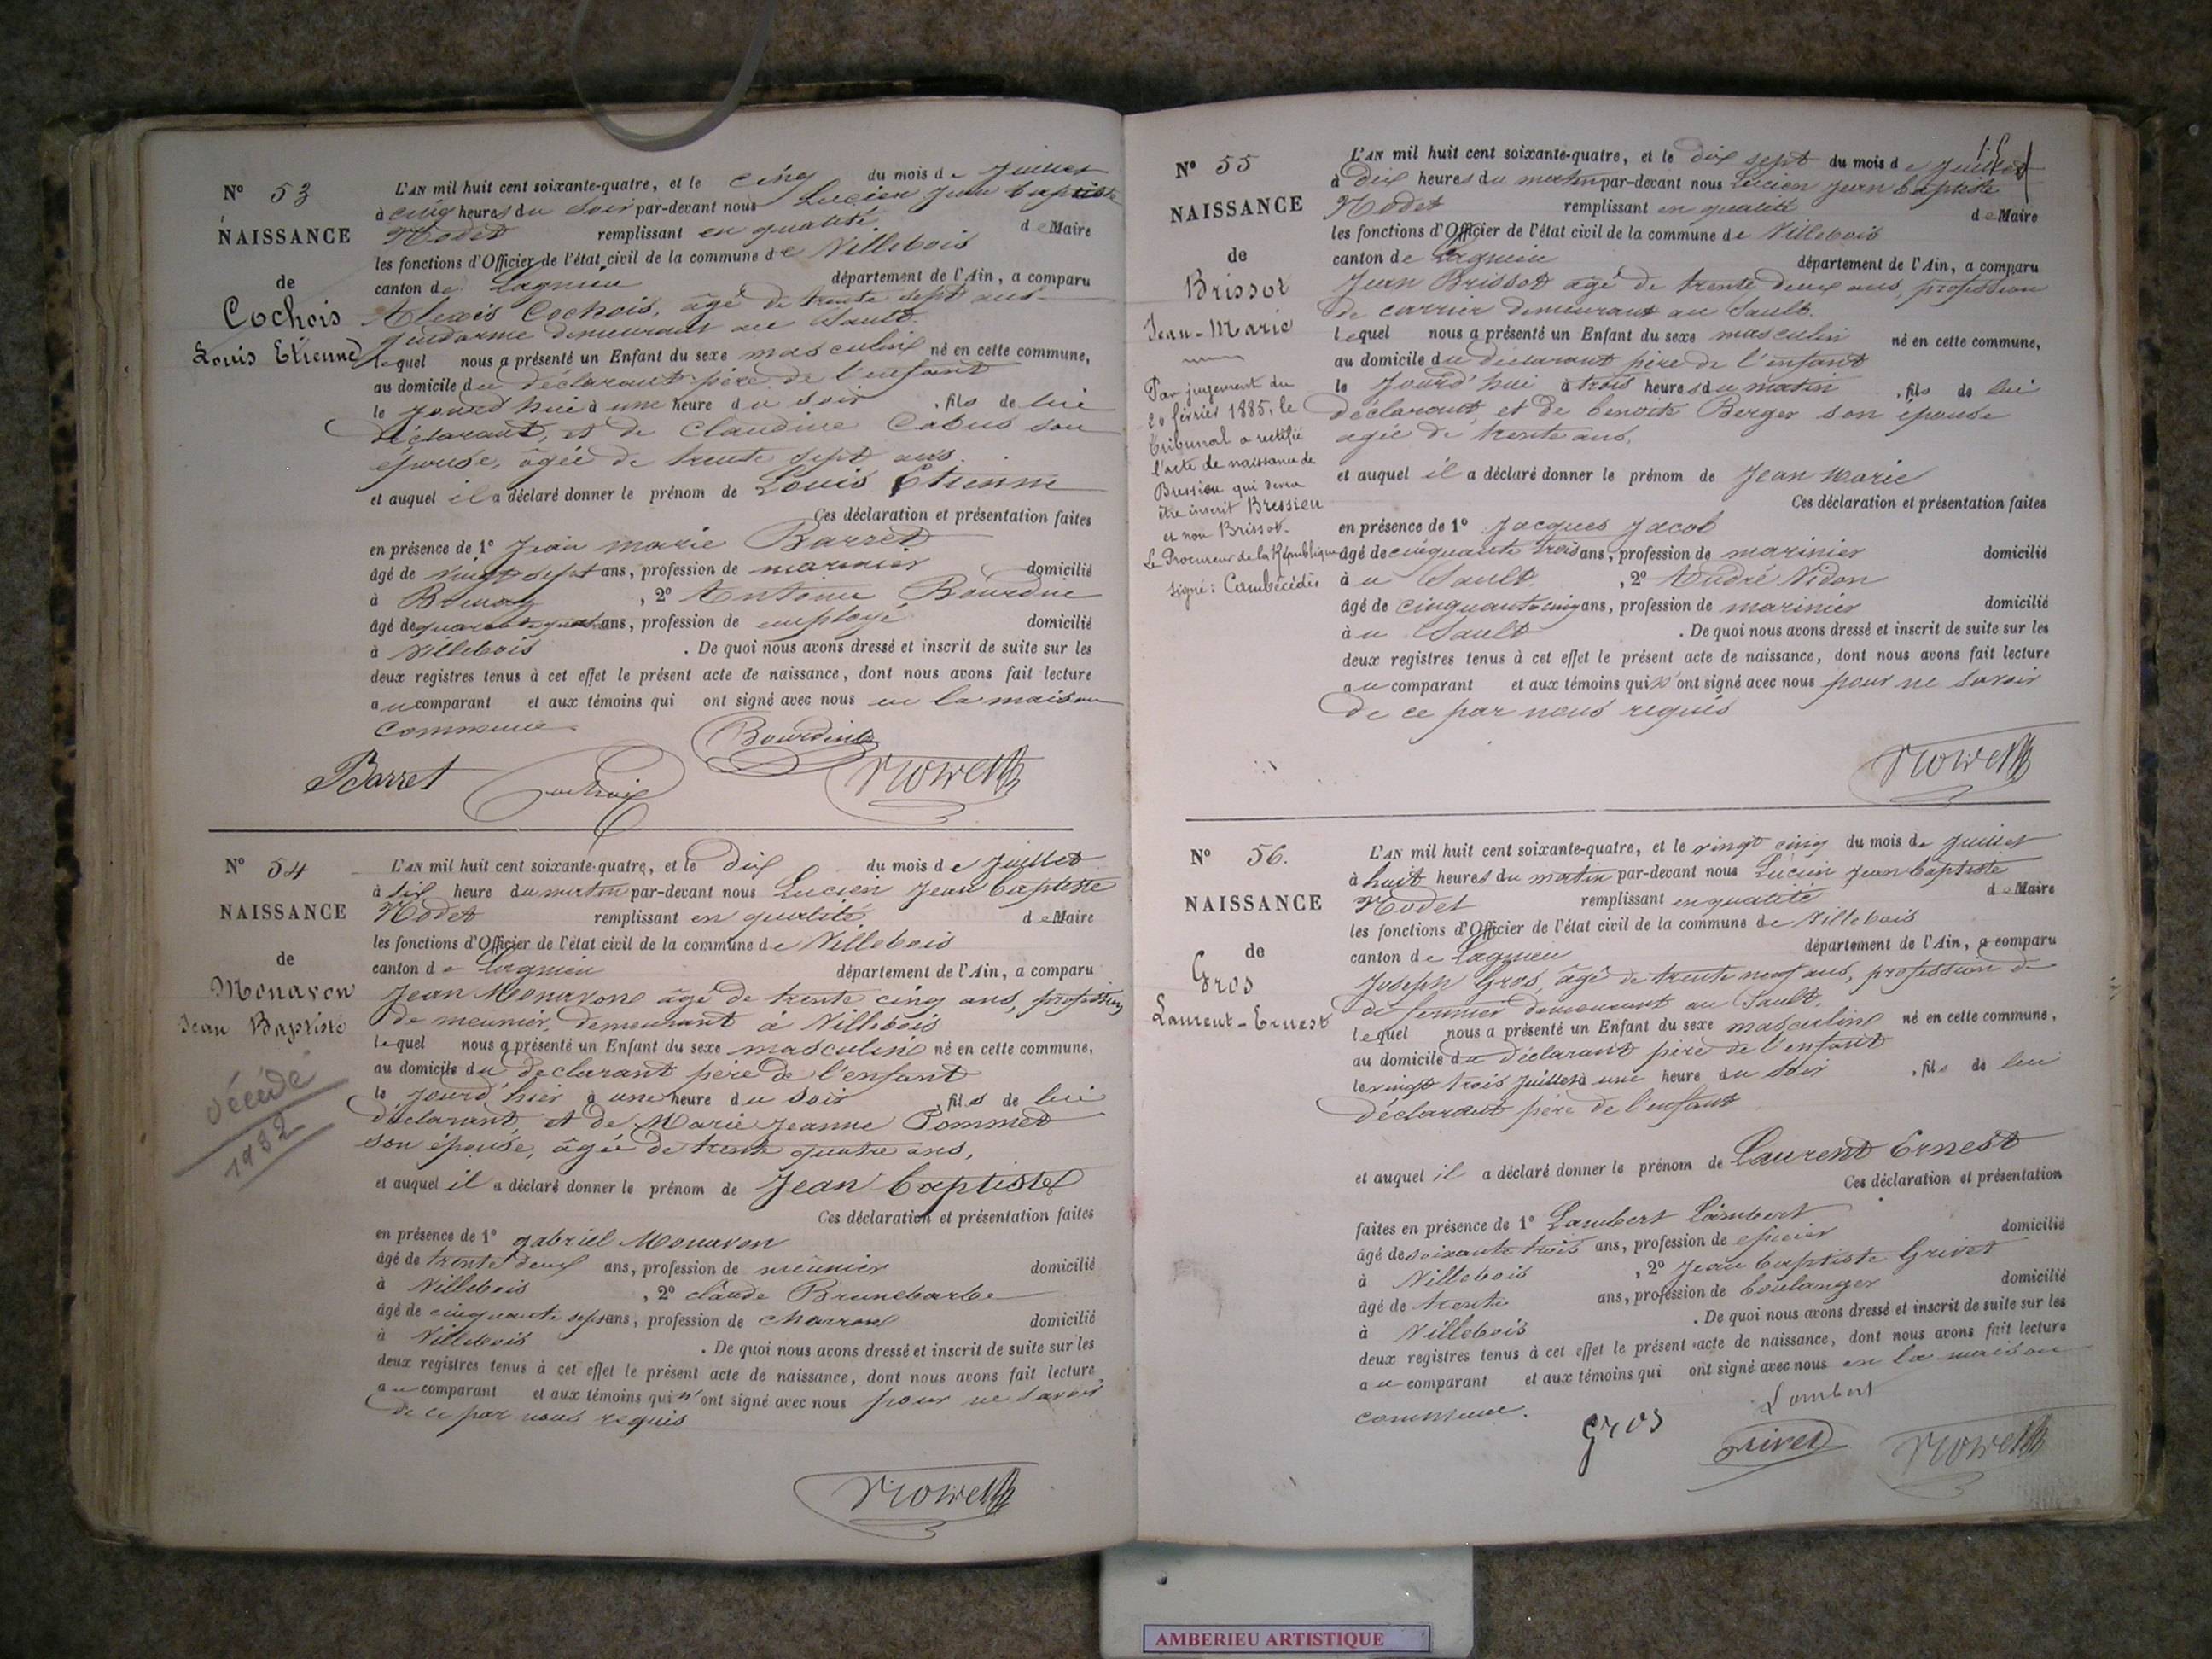 N° 53
NAISSANCE
de
Cochois
Louis Etienne
L'AN mil huit cent soixante-quatre, et le cinq du mois de Juillet
à cinq heures du soir par-devant nous Lucien Jean baptiste
Nodet remplissant en qualité de Maire
les fonctions d'Officier de l'état civil de la commune de Villebois
canton de Lagnieu département de l'Ain, a comparu
Alexis Cochois, âgé de trente sept ans
gendarme demeurant au Sault.
lequel nous a présenté un Enfant du sexe masculin né en cette commune,
au domicile du déclarant père de l'enfant
le jourd'hui à une heure du soir , fils de lui
déclarant, et de Claudine Cabus son
épouse, âgée de trente sept ans.
et auquel il a déclaré donner le prénom de Louis Etienne
Ces déclaration et présentation faites
en présence de 1° Jean marie Barret
âgé de vingt sept ans, profession de marinier domicilié
à , 2° Antoine
âgé de ans, profession de employé domicilié
à Villebois . De quoi nous avons dressé et inscrit de suite sur les
deux registres tenus à cet effet le présent acte de naissance, dont nous avons fait lecture
au comparant et aux témoins qui ont signé avec nous en la maison
commune
Barret
N° 54
NAISSANCE
de
Monavon
Jean Baptiste
décédé
1932
L'AN mil huit cent soixante-quatre, et le dix du mois de Juillet
à six heure du matin par-devant nous Lucien Jean baptiste
Nodet remplissant en qualité de Maire
les fonctions d'Officier de l'état civil de la commune de Villebois
canton de Lagnieu département de l'Ain, a comparu
Jean Monavon âgé de trente cinq ans, profession
de meunier, demeurant à Villebois
lequel nous a présenté un Enfant du sexe masculin né en cette commune,
au domicile du déclarant père de l'enfant
le jourd'hier à une heure du soir , fils de lui
déclarant, et de Marie Jeanne Pommet
son épouse, âgée de trente quatre ans,
et auquel il a déclaré donner le prénom de Jean baptiste
Ces déclaration et présentation faites
en présence de 1° gabriel Monavon
âgé de trente deux ans, profession de meunier domicilié
à Villebois , 2° claude Brunebarbe
âgé de cinquante sept ans, profession de charron domicilié
à Villebois . De quoi nous avons dressé et inscrit de suite sur les
deux registres tenus à cet effet le présent acte de naissance, dont nous avons fait lecture
au comparant et aux témoins qui n'ont signé avec nous pour ne savoir
de ce par nous requis
N° 55
NAISSANCE
de
Brissot
Jean-Marie
Par jugement du
20 février 1885, le
tribunal a rectifié
l'acte de naissance de
Bressieu qui devra
être inscrit Bressieu
et non Brissot.
Le Procureur de la République
signé: Cambécédès
L'AN mil huit cent soixante-quatre, et le dix sept du mois de Juillet
à dix heures du matin par-devant nous Lucien Jean baptiste
Nodet remplissant en qualité de Maire
les fonctions d'Officier de l'état civil de la commune de Villebois
canton de Lagnieu département de l'Ain, a comparu
Jean Brissot âgé de trente deux ans, profession
de carrier demeurant au Sault.
lequel nous a présenté un Enfant du sexe masculin né en cette commune,
au domicile du déclarant père de l'enfant
le jourd'hui à trois heures du matin , fils de lui
déclarant, et de benoite Berger son épouse
agée de trente ans,
et auquel il a déclaré donner le prénom de Jean Marie
Ces déclaration et présentation faites
en présence de 1° Jacques Jacob
âgé de cinquante trois ans, profession de marinier domicilié
au Sault , 2° André Nidon
âgé de cinquante cinq ans, profession de marinier domicilié
au Sault . De quoi nous avons dressé et inscrit de suite sur les
deux registres tenus à cet effet le présent acte de naissance, dont nous avons fait lecture
au comparant et aux témoins qui n'ont signé avec nous pour ne savoir
de ce par nous requis
N° 56.
NAISSANCE
de
Gros
Laurent-Ernest
L'AN mil huit cent soixante-quatre, et le vingt cinq du mois de Juillet
à huit heures du matin par-devant nous Lucien Jean baptiste
Nodet remplissant en qualité de Maire
les fonctions d'Officier de l'état civil de la commune de Villebois
canton de Lagnieu département de l'Ain, a comparu
Joseph Gros, âgé de trente neuf ans, profession de
de fermier demeurant au Sault.
lequel nous a présenté un Enfant du sexe masculin né en cette commune,
au domicile du déclarant père de l'enfant
le vingt trois Juillet à une heure du soir , fils de lui
déclarant père de l'enfant
et auquel il a déclaré donner le prénom de Laurent Ernest
Ces déclaration et présentation
faites en présence de 1° Lambert Lambert
âgé de soixante trois ans, profession de épicier domicilié
à Villebois , 2° Jean baptiste Grivet
âgé de trente ans, profession de boulanger domicilié
à Villebois . De quoi nous avons dressé et inscrit de suite sur les
deux registres tenus à cet effet le présent acte de naissance, dont nous avons fait lecture
au comparant et aux témoins qui ont signé avec nous en la maison
commune.
Lambert
Gros
AMBERIEU ARTISTIQUE